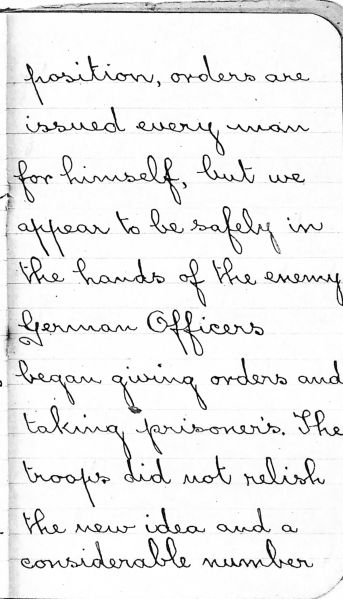 position, orders are
issued every man
for himself, but we
appear to be safely in
the hands of the enemy
German Officers
began giving orders and
taking prisoner's. The
troops did not relish
the new idea and a
considerable number